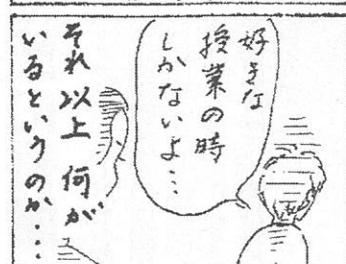 好きな
授業の時
しかないよ…
それ以上何が
いるというのか…